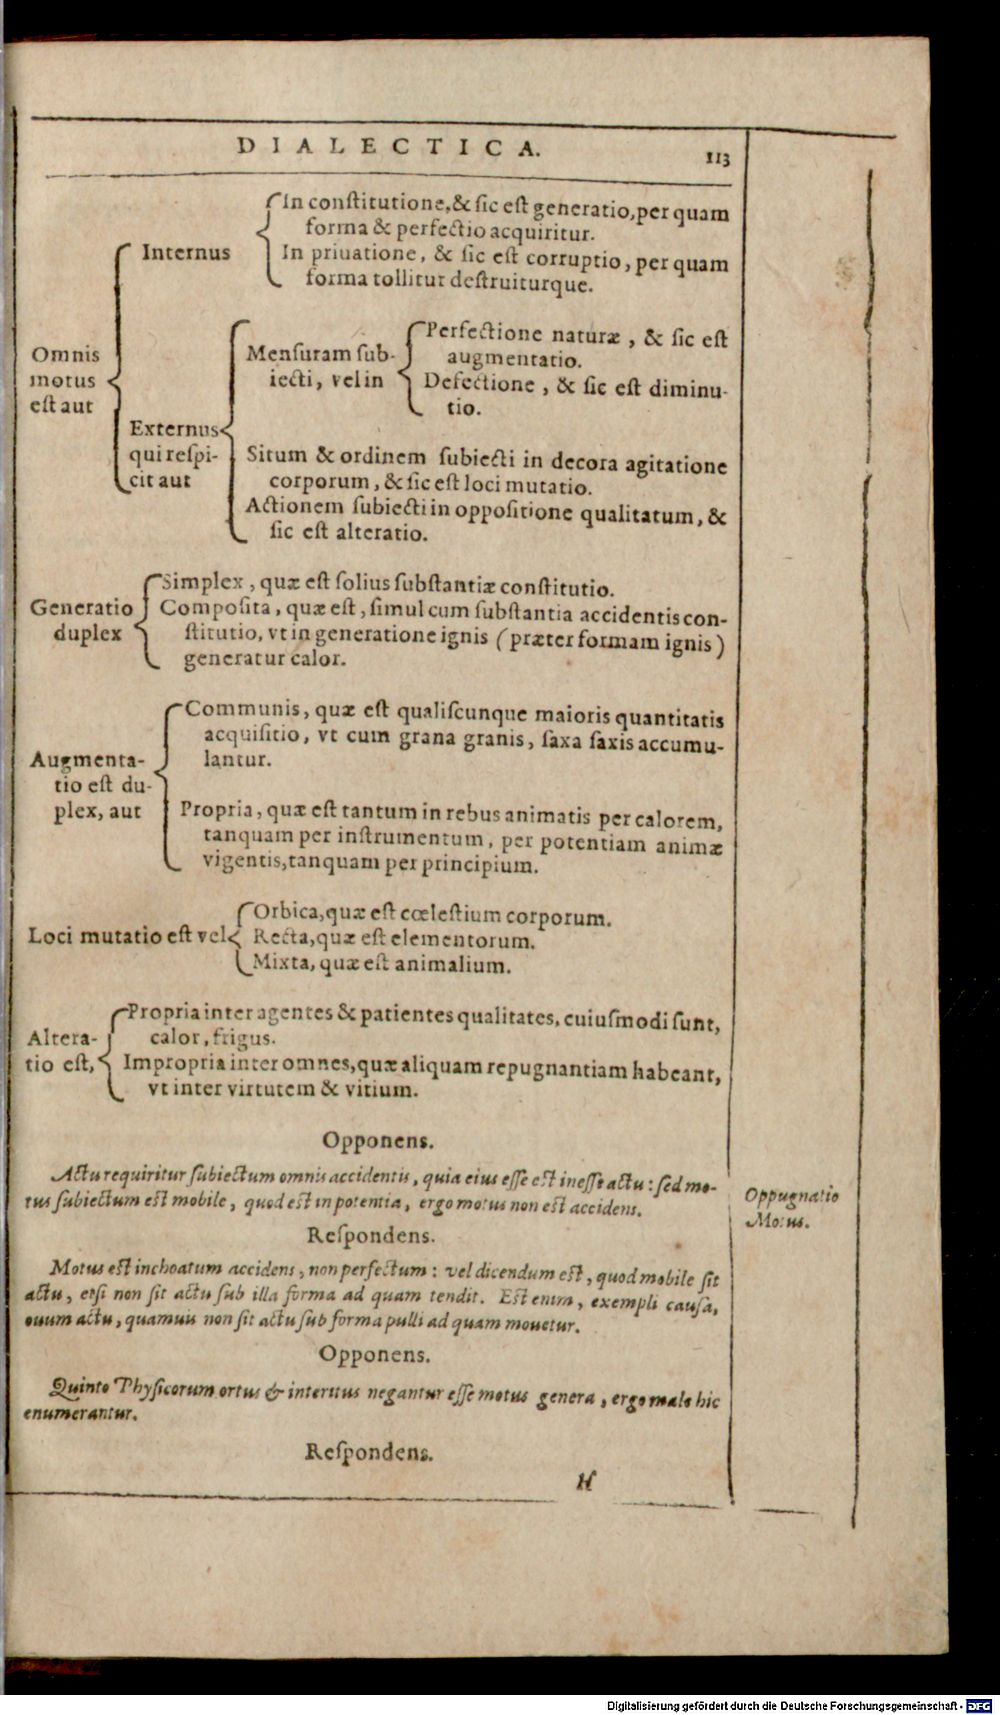 DIALECTICA.
113
In constitutione, & sic est generatio, per quam
forma & perfectio acquiritur.
Internus
In priuatione, & sic est corruptio, per quam
forma tollitur destruiturque.
Omnis
motus
est aut
Externus
qui respi-
cit aut
Mensuram sub-
iecti, vel in
Perfectione naturæ, & sic est
augmentatio.
Defectione, & sic est diminu-
tio.
Situm & ordinem subiecti in decora agitatione
corporum, & sic est loci mutatio.
Actionem subiecti in oppositione qualitatum, &
sic est alteratio.
Generatio
duplex
Simplex, quæ est solius substantiæ constitutio.
Composita, quæ est, simul cum substantia accidentis con-
stitutio, vt in generatione ignis (præter formam ignis)
generatur calor.
Augmenta-
tio est du-
plex, aut
Communis, quæ est qualiscunque maioris quantitatis
acquisitio, vt cum grana granis, saxa saxis accumu-
lantur.
Propria, quæ est tantum in rebus animatis per calorem,
tanquam per instrumentum, per potentiam animæ
vigentis, tanquam per principium.
Loci mutatio est vel
Orbica, quæ est cœlestium corporum.
Recta, quæ est elementorum.
Mixta, quæ est animalium.
Altera-
tio est,
Propria inter agentes & patientes qualitates, cuiusmodi sunt,
calor, frigus.
Impropria inter omnes, quæ aliquam repugnantiam habeant,
vt inter virtutem & vitium.
Opponens.
Actu requiritur subiectum omnis accidentis, quia eius esse est inesse actu: sed mo-
tus subiectum est mobile, quod est in potentia, ergo motus non est accidens.
Oppugnatio
Motus.
Respondens.
Motus est inchoatum accidens, non perfectum: vel dicendum est, quod mobile sit
actu, etsi non sit actu sub illa forma ad quam tendit. Est enim, exempli causa,
ouum actu, quamuis non sit actu sub forma pulli ad quam mouetur.
Opponens.
Quinto Physicorum ortus & interitus negantur esse motus genera, ergo male hic
enumerantur.
Respondens.
H
Digitalisierung gefördert durch die Deutsche Forschungsgemeinschaft - DFG